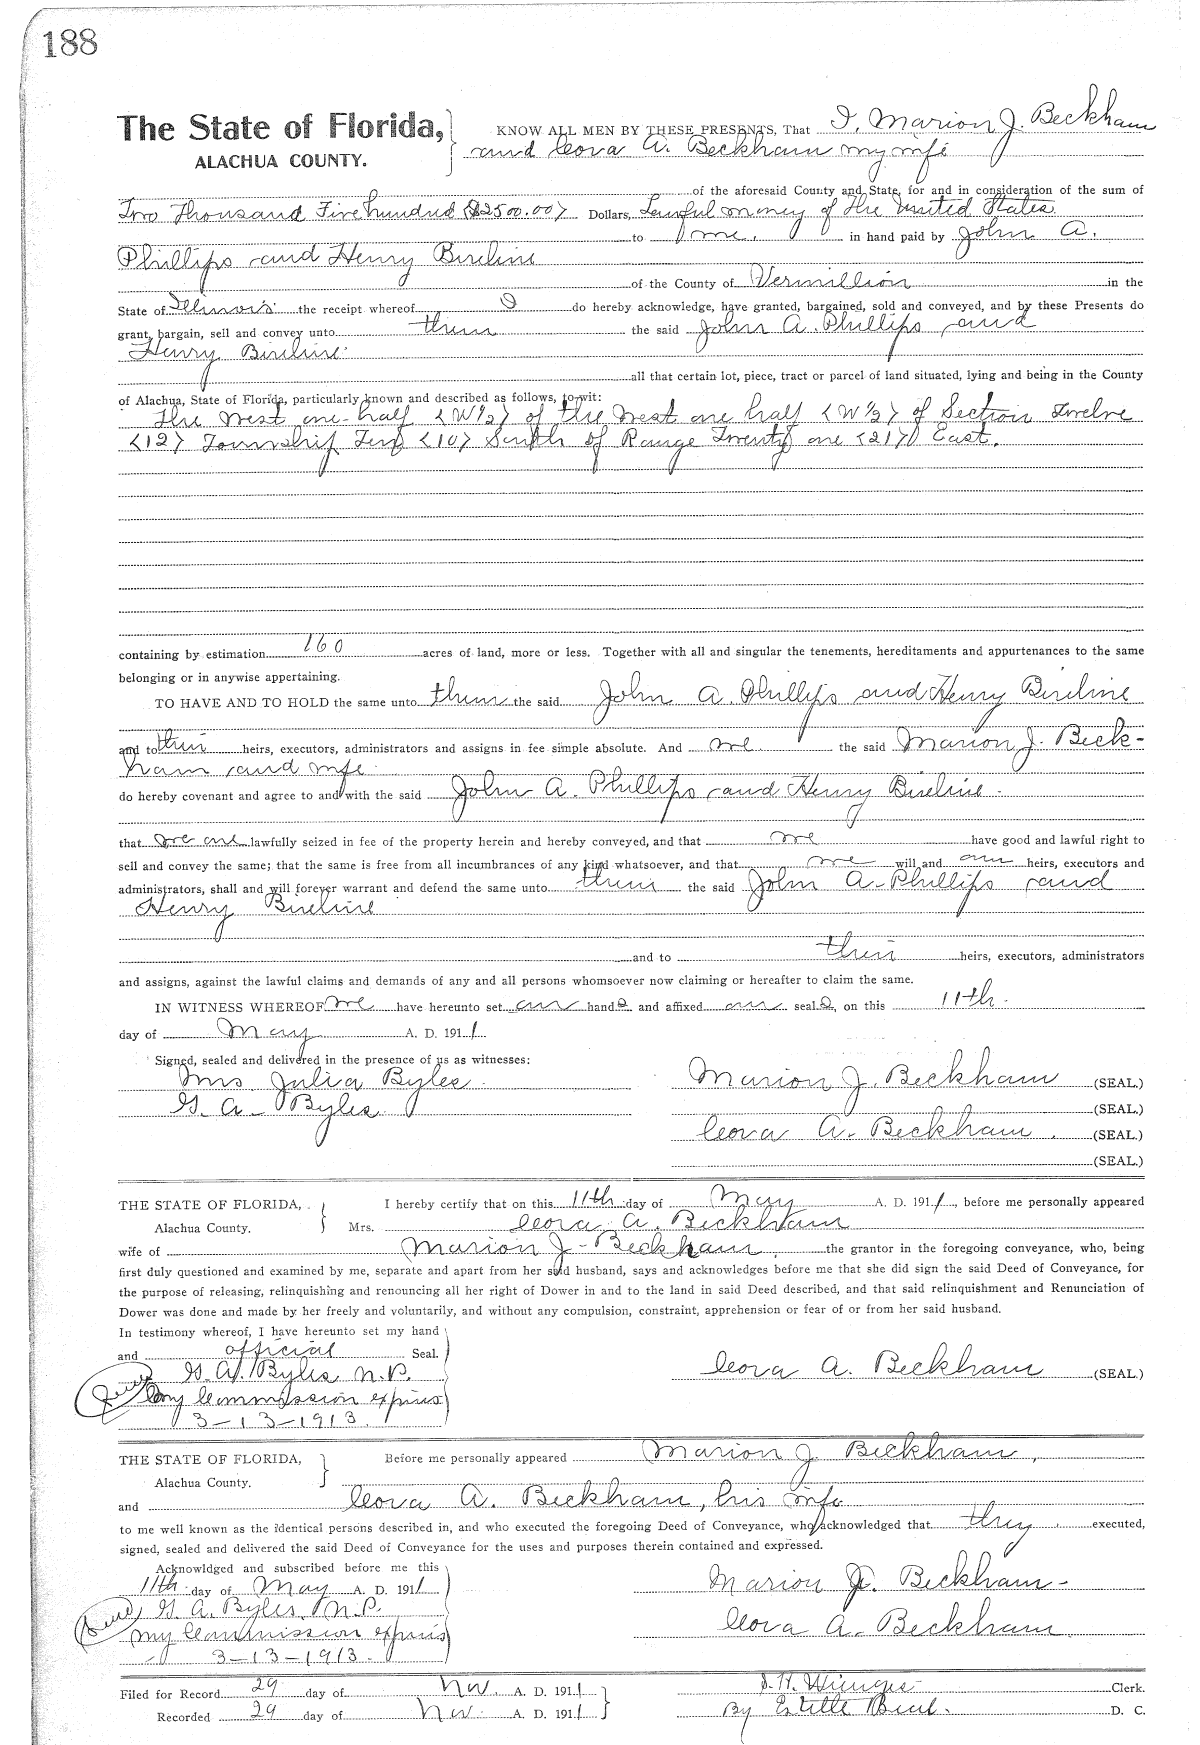 188
The State of Florida, KNOW ALL MEN BY THESE PRESENTS, That I, Marion J. Beckham
ALACHUA COUNTY. and Ceora A. Beckham my wife
of the aforesaid County and State, for and in consideration of the sum of
Two Thousand Five hundred ($2500.00) Dollars, Lawful money of the United States
to me, in hand paid by John A.
Phillips and Henry Bireline
of the County of Vermillion in the
State of Illinois the receipt whereof I do hereby acknowledge, have granted, bargained, sold and conveyed, and by these Presents do
grant, bargain, sell and convey unto them the said John A. Phillips and
Henry Bireline
all that certain lot, piece, tract or parcel of land situated, lying and being in the County
of Alachua, State of Florida, particularly known and described as follows, to wit:
The West one-half (W 1/2) of the West one half (W 1/2) of Section Twelve
(12) Township Ten (10) South of Range Twenty one (21) East.
containing by estimation 160 acres of land, more or less. Together with all and singular the tenements, hereditaments and appurtenances to the same
belonging or in anywise appertaining.
TO HAVE AND TO HOLD the same unto them the said John A. Phillips and Henry Bireline
and to their heirs, executors, administrators and assigns in fee simple absolute. And we the said Marion J. Beck-
ham and wife
do hereby covenant and agree to and with the said John A. Phillips and Henry Bireline -
that we are lawfully seized in fee of the property herein and hereby conveyed, and that we have good and lawful right to
sell and convey the same; that the same is free from all incumbrances of any kind whatsoever, and that we will and our heirs, executors and
administrators, shall and will forever warrant and defend the same unto them the said John A. Phillips and
Henry Bireline
and to their heirs, executors, administrators
and assigns, against the lawful claims and demands of any and all persons whomsoever now claiming or hereafter to claim the same.
IN WITNESS WHEREOF we have hereunto set our hands and affixed our seals, on this 11th
day of May A. D. 1911
Signed, sealed and delivered in the presence of us as witnesses:
Mrs. Julia Byles Marion J. Beckham (SEAL.)
G. A. Byles (SEAL.)
Ceora A. Beckham. (SEAL.)
(SEAL.)
THE STATE OF FLORIDA, I hereby certify that on this 11th day of May A. D. 1911, before me personally appeared
Alachua County. Mrs. Ceora A. Beckham
wife of Marion J. Beckham, the grantor in the foregoing conveyance, who, being
first duly questioned and examined by me, separate and apart from her said husband, says and acknowledges before me that she did sign the said Deed of Conveyance, for
the purpose of releasing, relinquishing and renouncing all her right of Dower in and to the land in said Deed described, and that said relinquishment and Renunciation of
Dower was done and made by her freely and voluntarily, and without any compulsion, constraint, apprehension or fear of or from her said husband.
In testimony whereof, I have hereunto set my hand
and official Seal.
G. A. Byles N.P. Ceora A. Beckham (SEAL)
My Commission expires
3-13-1913.
THE STATE OF FLORIDA, Before me personally appeared Marion J. Beckham,
Alachua County.
and Ceora A. Beckham, his wife
to me well known as the identical persons described in, and who executed the foregoing Deed of Conveyance, who acknowledged that they executed,
signed, sealed and delivered the said Deed of Conveyance for the uses and purposes therein contained and expressed.
Acknowldged and subscribed before me this
11th day of May A. D. 1911 Marion J. Beckham -
G. A. Byles, N.P. Ceora A. Beckham
My Commission expires
3-13-1913.
Filed for Record 29 day of Nov. A. D. 1911 S. H. Wienges Clerk.
Recorded 29 day of Nov. A. D. 1911 By Estelle D. C.